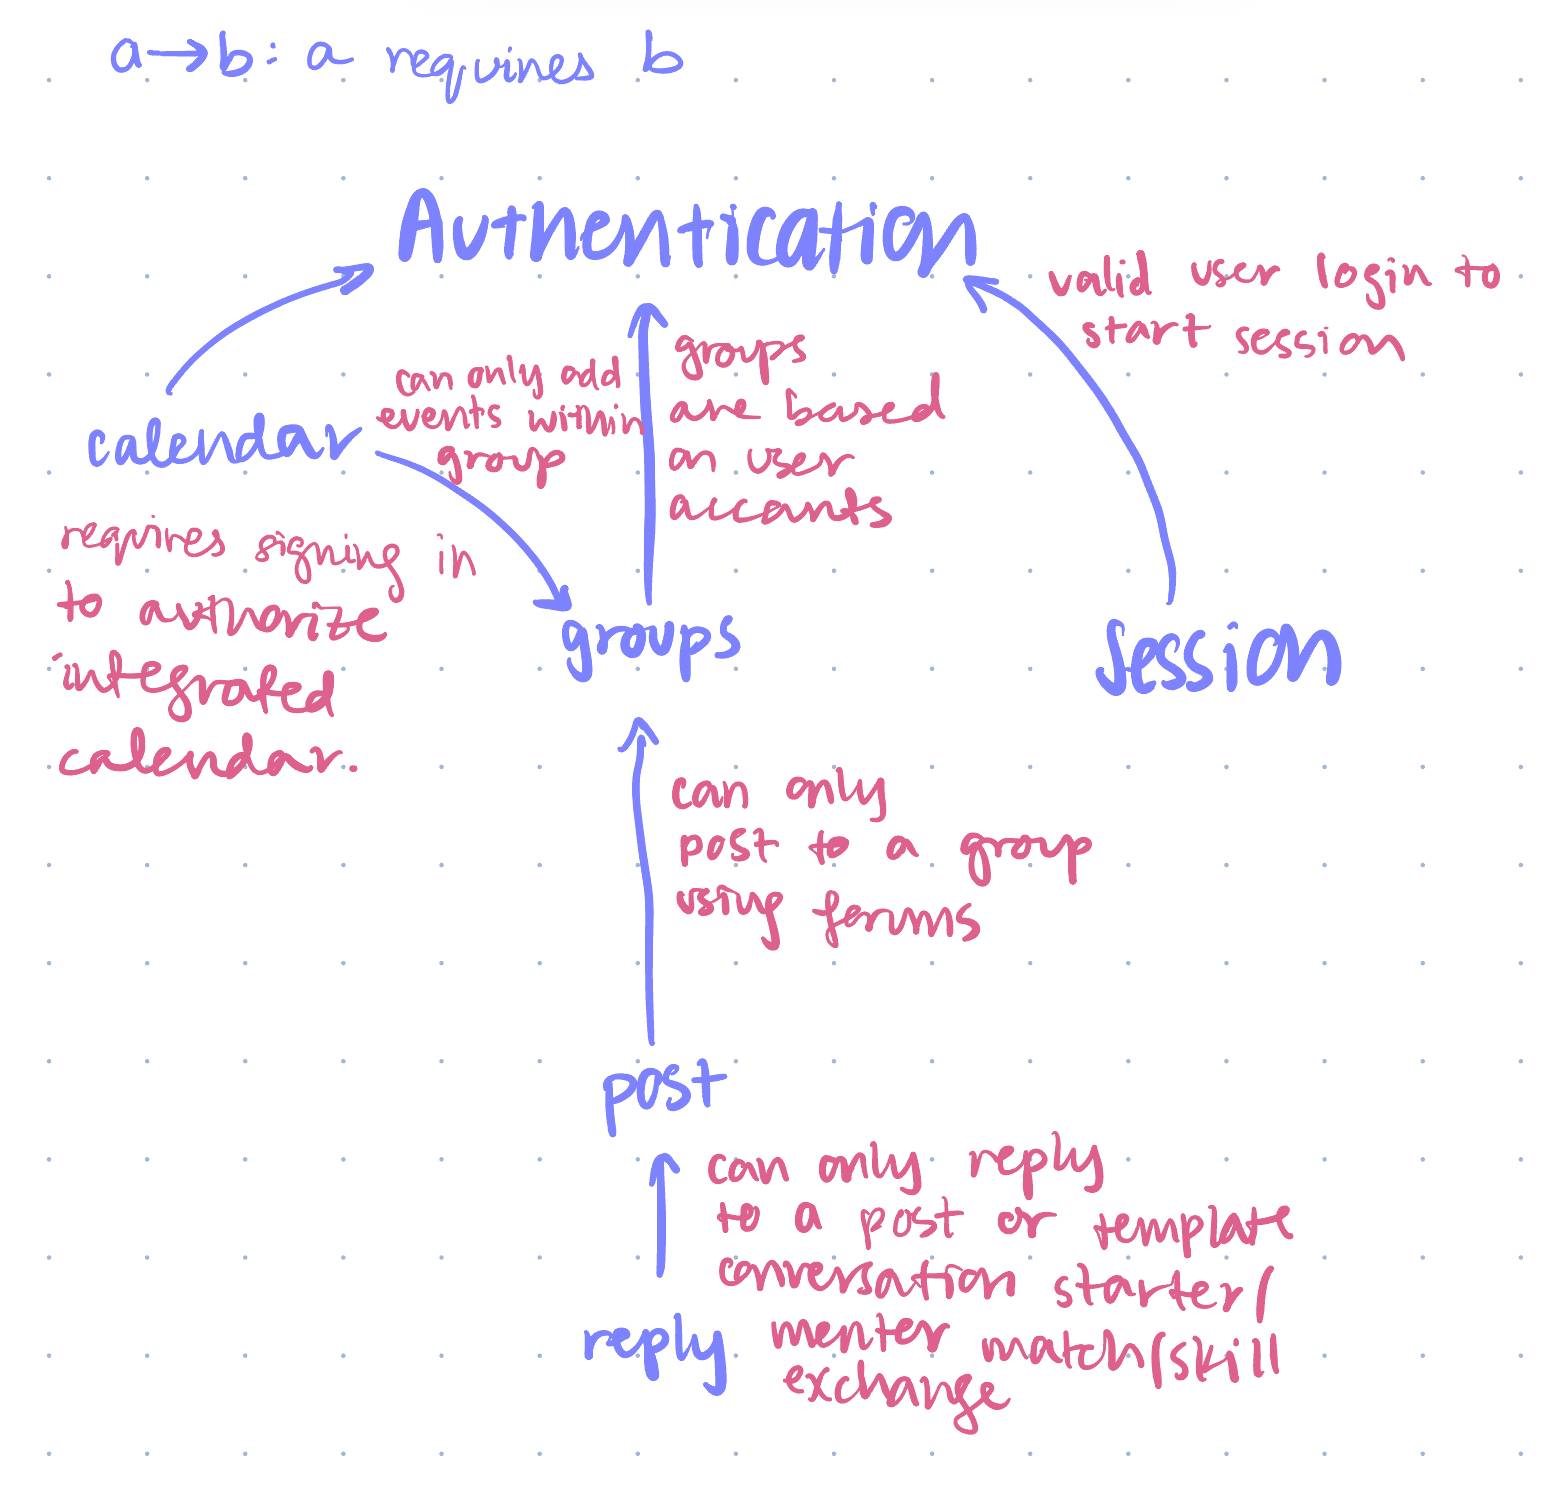 a→b: a requires b
Authentication
valid user login to
start session
can only add
events within
group
groups
are based
on user
accounts
calendar
requires signing in
to authorize
integrated
calendar.
groups
session
can only
post to a group
using forms
post
can only reply
to a post or template
conversation starter/
mentor match/skill
exchange
reply